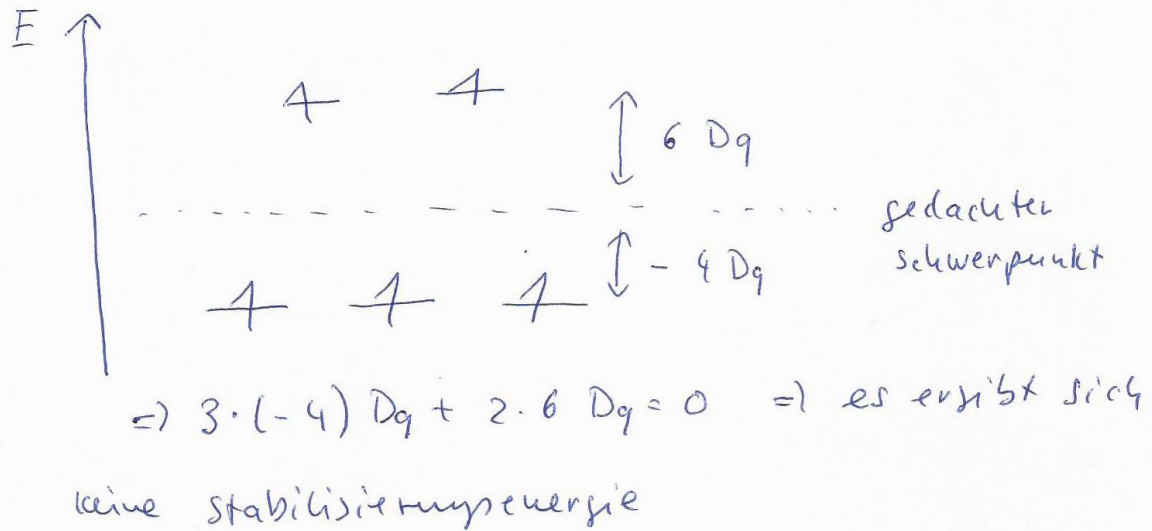 E
6 Dq
gedachter
schwerpunkt
- 4 Dq
=> 3·(-4) Dq + 2·6 Dq = 0 => es ergibt sich
keine stabilisierungsenergie